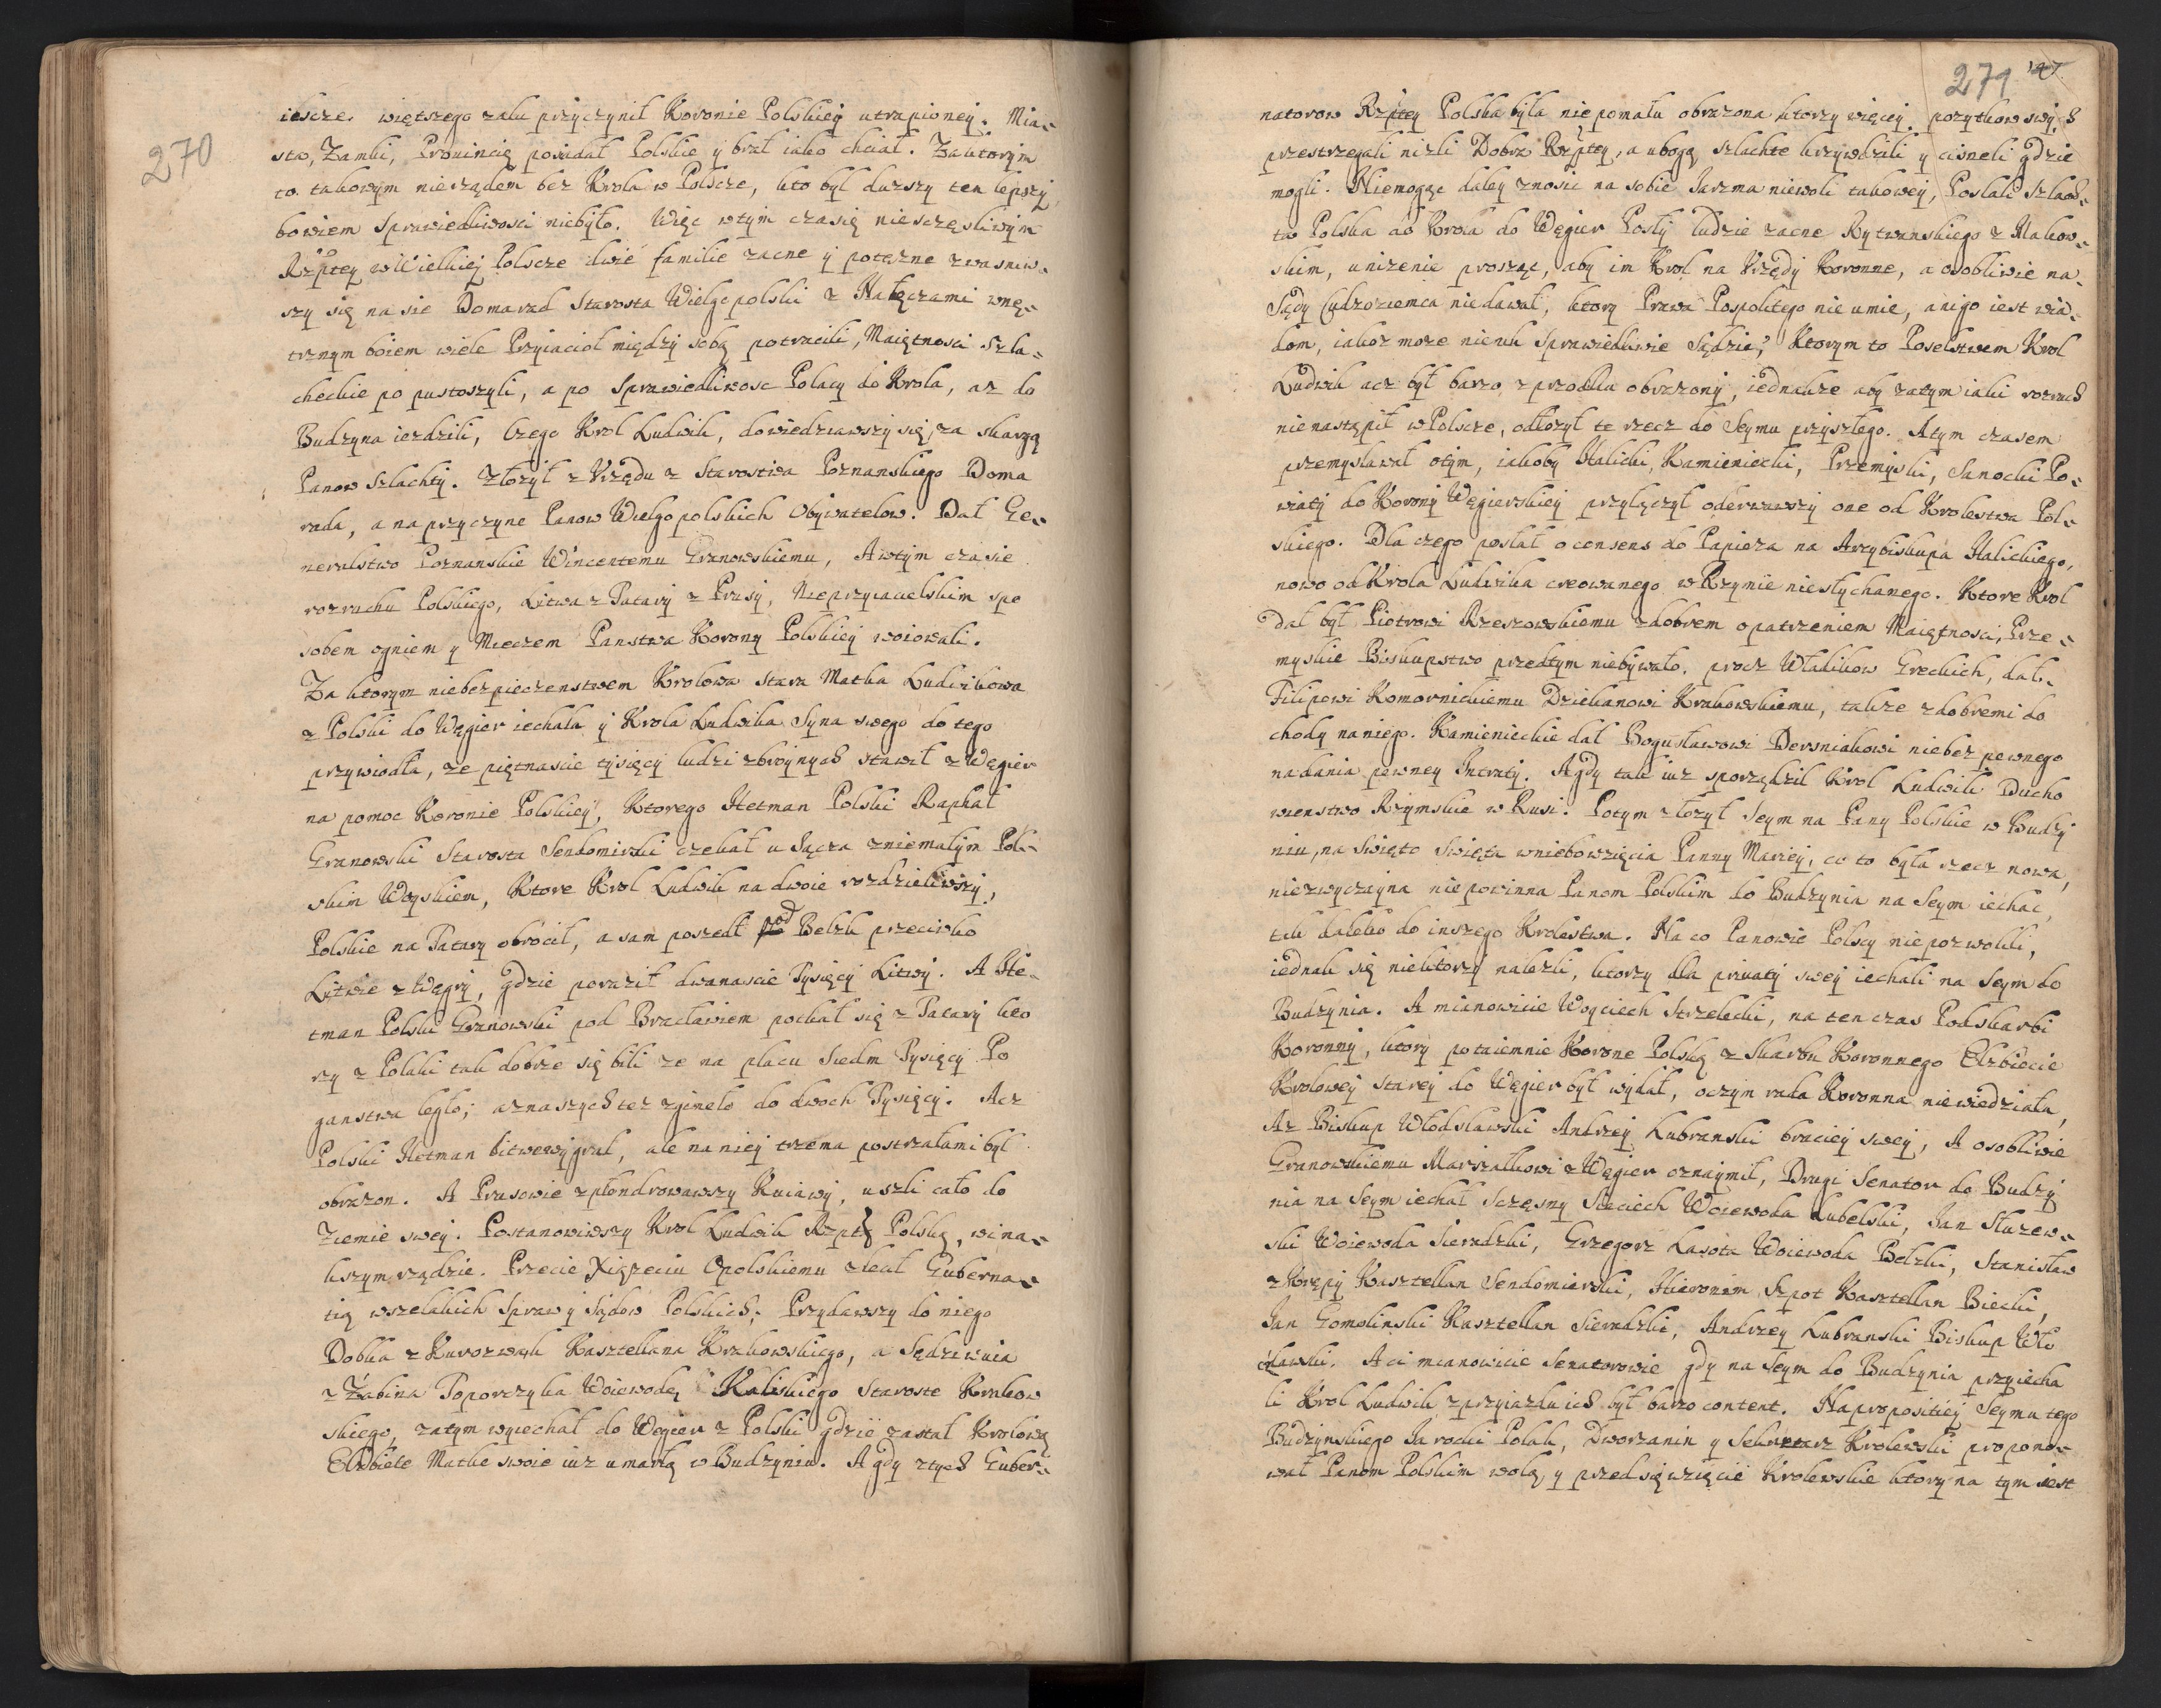 270
iescze większego zalu przyczynił Koronie Polskiey utrapioney. Mia-
sto, Zamki, Prouincią posiadał Polskie y brał iako chciał. Zaktorym
to takowym nierządem bez Krola w Polscze, kto był duzszy ten lepszy
bowiem Sprawiedliwosci niebyło. Więc wtym czasię niesczęsliwym
Rzptey w Wielkiej Polscze dwie familie zacne y potęzne zwasniw-
szy się na sie Domarad Starosta Wielgopolski z Nałęczami wnę-
trznym boiem wiele Przyiacioł między sobą potracili, Maiętnosci Szla-
checkie po pustoszyli, a po Sprawiedliwosc Polacy do Krola, az do
Budzyna iezdzili, Czego Krol Ludwik, dowiedziawszy się za skargą
Panow Szlachty. Złozył z Vrzędu z Starostwa Poznanskiego Doma
rada, a na przyczyne Panow Wielgopolskich Obywatelow. Dał Ge-
neralstwo Poznanskie Wincentemu Granowskiemu, Awtym czasie
rozruchu Polskiego, Litwa z Tatary z Prusy, Nieprzyiacielskim spo
sobem ogniem y Mieczem Panstwa Korony Polskiey woiowali.
Za ktorym niebezpieczenstwem Krolowa stara Matka Ludwikowa
z Polski do Węgier iechała y Krola Ludwika Syna swego do tego
przywiodła, ze piętnascie tysięcy ludzi zbroynych stawił z Węgier
na pomoc Koronie Polskiey, Ktorego Hetman Polski Raphał
Granowski Starosta Sendomirski czekał u Sącza zniemałym Pol-
skim Woyskiem, Ktore Krol Ludwik na dwoie rozdzieliwszy,
Polskie na Tatary obrocił, a sam poszedł pod Bełzk przeciwko
Litwie z Węgry, gdzie poraził dwanascie Tysięcy Litwy. A He-
tman Polski Granowski pod Bracławiem potkał się z Tatary kto
rzy z Polaki tak dobrze się bili ze na placu Siedm Tysięcy Po
ganstwa legło; aznaszych tez zgineło do dwoch Tysięcy. Acz
Polski Hetman bitwewygrał, ale na niey trzema postrzałami był
obrazon. A Prusowie zplondrowawszy Kuiawy, uszli cało do
Ziemie swey. Postanowiwszy Krol Ludwik Rzptą Polską, wina-
kszym rządzie. Przecie Xiązeciu Opolskiemu zlecił Guberna-
tią wszelakich Spraw y Sądow Polskich; Przydawszy do niego
Dobka z Kurozwąk Kasztellana Krakowskiego, a Sędziwoia
z Zabina Toporczyka Woiewodę Kaliskiego Staroste Krakow
skiego, zatym wyiechał do Węgier z Polski gdzie zastał Krolową
Elzbiete Matke swoie iuz umarłą w Budzyniu. A gdy ztych Guber-
271 147
natorow Rzptey Polska była nie pomału obrazona ktorzy więcey pozytkow swych
przestrzegali nizli Dobra Rzptey, a ubogą szlachte krzywdzili y cisneli gdzie
mogli. Niemogąc daley znosic na sobie Jarzma niewoli takowey, Posłali Szlach-
ta Polska do Krola do Węgier Posły ludzie zacne Rytwanskiego z Makow-
skim, unizenie prosząc, aby im Krol na Vrzędy Koronne, a osobliwie na
Sądy Cudzoziemca niedawał, ktory Prawa Pospolitego nie umie, anigo iest wia-
dom, iakoz moze nieuk Sprawiedliwie Sędzic? Ktorym to Poselstwem Krol
Ludwik acz był barzo zprzodku obrazony, iednakze aby zatym iaki rozruch
nienastąpił w Polscze, odłozył te rzecz do Seymu przyszłego. Atym czasem
przemyslawał otym, iakoby Halicki, Kamieniecki, Przemyski, Sanocki Po-
wiaty do Korony Węgierskiey przyłączył oderwawszy one od Krolestwa Pol-
skiego. Dla czego posłał o consens do Papieza na Arzybiskupa Halickiego,
nowo od Krola Ludwika creowanego w Rzymie niesłychanego. Ktore Krol
Dał był Piotrowi Rzeszowskiemu zdobrem opatrzeniem Maiętnosci, Prze-
myskie Biskupstwo przedtym niebywało, procz Władikow Greckich, dał-
Filipowi Komornickiemu Dziekanowi Krakowskiemu, takze zdobremi do
chody naniego. Kamienieckie dał Bogusławowi Dersniakowi niebez pewnego
nadania pewney Intraty. Agdy tak iuz sporządził Krol Ludwik Ducho
wienstwo Rzymskie w Rusi. Potym złozył Seym na Pany Polskie w Budzy
niu, na Swięto Swięta wniebowzięcia Panny Mariey, co to była rzecz nowa,
niezwyczayna nie powinna Panom Polskim do Budzynia na Seym iechac,
tak daleko do inszego Krolestwa. Na co Panowie Polscy niepozwolili,
iednak się niektorzy nalezli, ktorzy dla priuaty swey iechali na Seym do
Budzynia. A mianowicie Woyciech Strzelecki, na ten czas Podskarbi
Koronny, ktory potaiemnie Korone Polską z Skarbu Koronnego Elzbiecie
Krolowey starey do Węgier był wydał, oczym rada Koronna niewiedziała,
Az Biskup Włodsławski Andrzey Lubranski braciey swey, A osobliwie
Granowskiemu Marszałkowi z Węgier oznaymił, Drugi Senator do Budzy
nia na Seym iechał Sczęsny Sieciech Woiewoda Lubelski, Jan Słuzew-
ski Woiewoda Sieradzki, Grzegorz Lasota Woiewoda Bełzki, Stanisław
z Krępy Kasztellan Sendomierski, Hieronim Szpot Kasztellan Biecki,
Jan Gomolinski Kasztellan Sieradzki, Andrzey Lubranski Biskup Wło
cławski. A ci mianowicie Senatorowie gdy na Seym do Budzynia przyiecha
li Krol Ludwik z przyiazdu ich był barzo content. Napropositiey Seymu tego
Budzynskiego Jarocki Polak, Dworzanin y Sekretarz Krolewski propono-
wał Panom Polskim wolą, y przedsięwzięcie Krolewskie ktory na tym iest